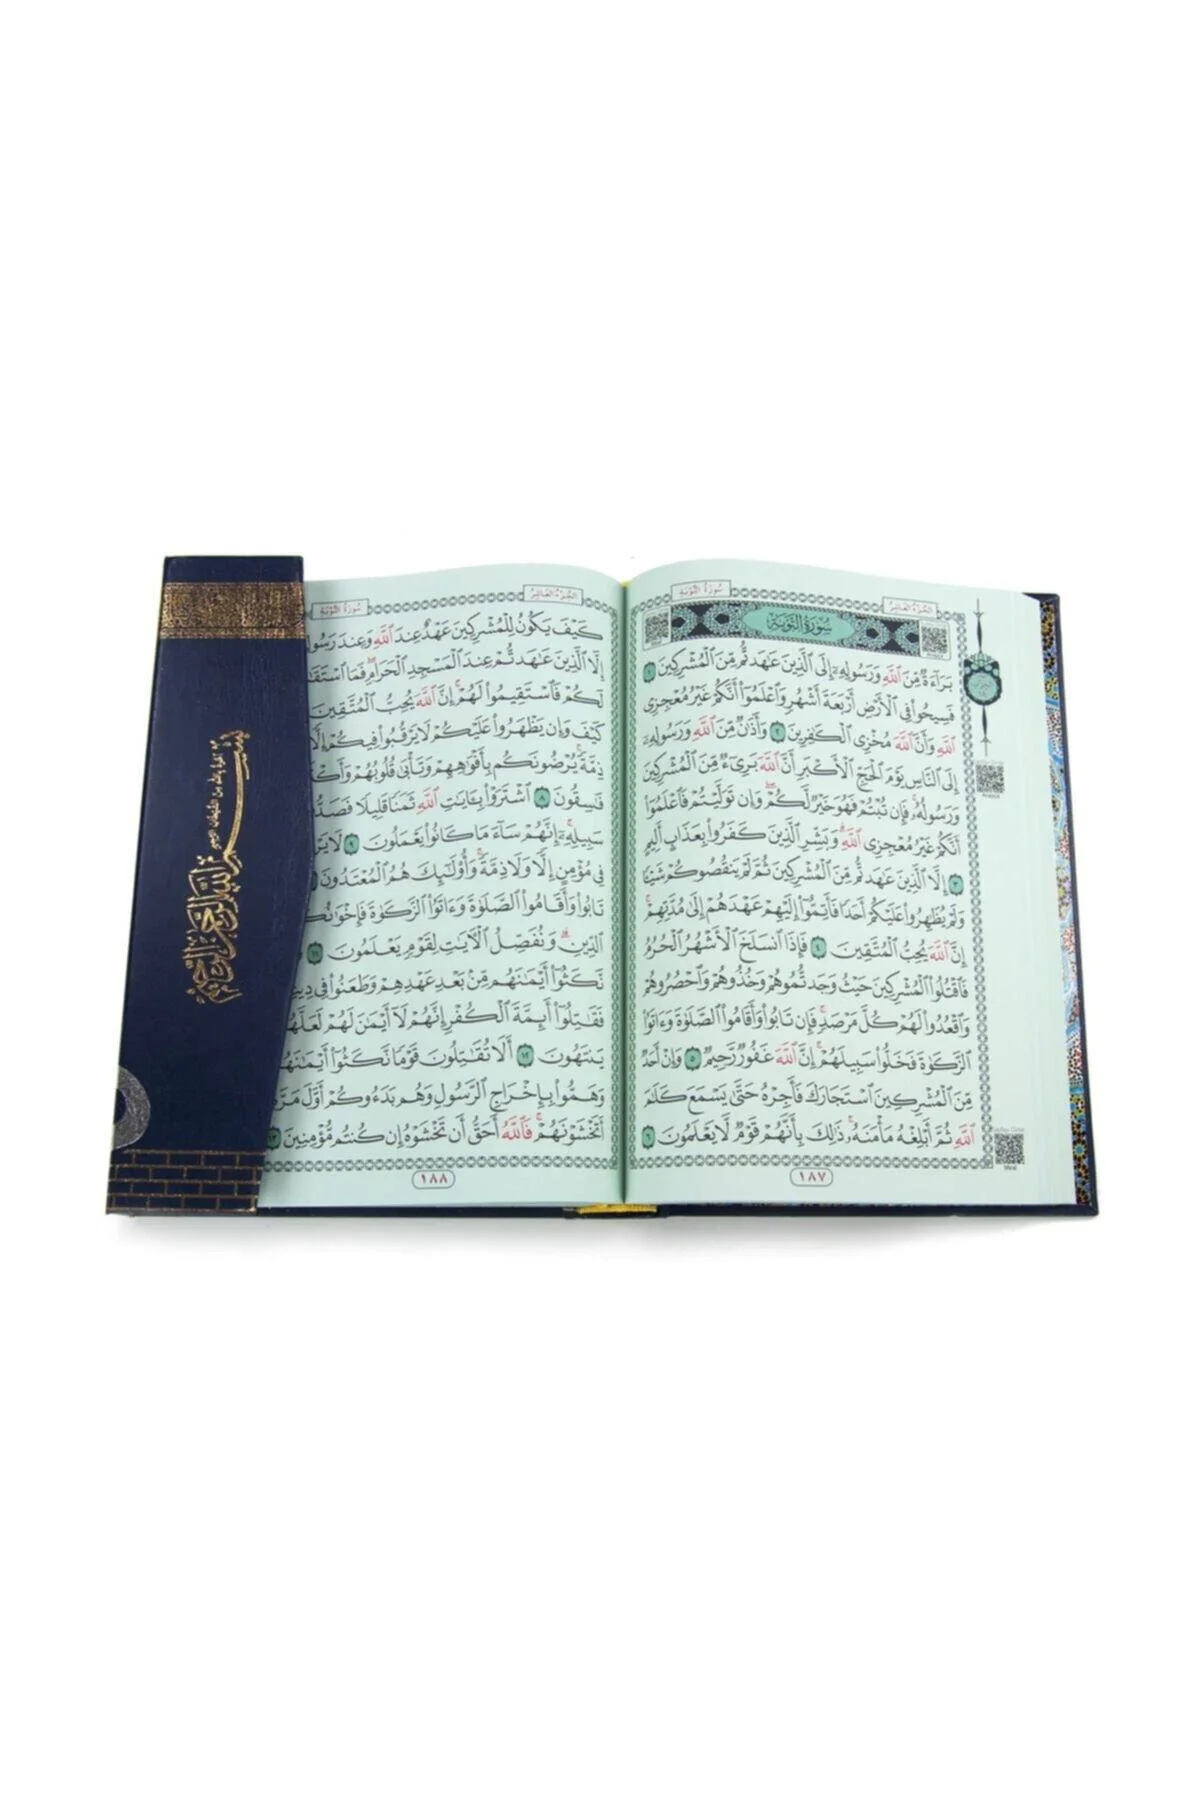 سُورَةُ التَّوْبَةِ
الجُزْءُ العَاشِرُ
سُورَةُ التَّوْبَةِ
بَرَآءَةٌ مِّنَ ٱللَّهِ وَرَسُولِهِۦٓ إِلَى ٱلَّذِينَ عَٰهَدتُّم مِّنَ ٱلْمُشْرِكِينَ ١
فَسِيحُوا۟ فِى ٱلْأَرْضِ أَرْبَعَةَ أَشْهُرٍ وَٱعْلَمُوٓا۟ أَنَّكُمْ غَيْرُ مُعْجِزِى
ٱللَّهِ وَأَنَّ ٱللَّهَ مُخْزِى ٱلْكَٰفِرِينَ ٢ وَأَذَٰنٌ مِّنَ ٱللَّهِ وَرَسُولِهِۦٓ
إِلَى ٱلنَّاسِ يَوْمَ ٱلْحَجِّ ٱلْأَكْبَرِ أَنَّ ٱللَّهَ بَرِىٓءٌ مِّنَ ٱلْمُشْرِكِينَ
وَرَسُولُهُۥ فَإِن تُبْتُمْ فَهُوَ خَيْرٌ لَّكُمْ وَإِن تَوَلَّيْتُمْ فَٱعْلَمُوٓا۟
أَنَّكُمْ غَيْرُ مُعْجِزِى ٱللَّهِ وَبَشِّرِ ٱلَّذِينَ كَفَرُوا۟ بِعَذَابٍ أَلِيمٍ
٣ إِلَّا ٱلَّذِينَ عَٰهَدتُّم مِّنَ ٱلْمُشْرِكِينَ ثُمَّ لَمْ يَنقُصُوكُمْ شَيْـًٔا
وَلَمْ يُظَٰهِرُوا۟ عَلَيْكُمْ أَحَدًا فَأَتِمُّوٓا۟ إِلَيْهِمْ عَهْدَهُمْ إِلَىٰ مُدَّتِهِمْ
إِنَّ ٱللَّهَ يُحِبُّ ٱلْمُتَّقِينَ ٤ فَإِذَا ٱنسَلَخَ ٱلْأَشْهُرُ ٱلْحُرُمُ
فَٱقْتُلُوا۟ ٱلْمُشْرِكِينَ حَيْثُ وَجَدتُّمُوهُمْ وَخُذُوهُمْ وَٱحْصُرُوهُمْ
وَٱقْعُدُوا۟ لَهُمْ كُلَّ مَرْصَدٍ فَإِن تَابُوا۟ وَأَقَامُوا۟ ٱلصَّلَوٰةَ وَءَاتَوُا۟
ٱلزَّكَوٰةَ فَخَلُّوا۟ سَبِيلَهُمْ إِنَّ ٱللَّهَ غَفُورٌ رَّحِيمٌ ٥ وَإِنْ أَحَدٌ
مِّنَ ٱلْمُشْرِكِينَ ٱسْتَجَارَكَ فَأَجِرْهُ حَتَّىٰ يَسْمَعَ كَلَٰمَ
ٱللَّهِ ثُمَّ أَبْلِغْهُ مَأْمَنَهُۥ ذَٰلِكَ بِأَنَّهُمْ قَوْمٌ لَّا يَعْلَمُونَ ٦
١٨٧
الجُزْءُ العَاشِرُ
سُورَةُ التَّوْبَةِ
كَيْفَ يَكُونُ لِلْمُشْرِكِينَ عَهْدٌ عِندَ ٱللَّهِ وَعِندَ
إِلَّا ٱلَّذِينَ عَٰهَدتُّمْ عِندَ ٱلْمَسْجِدِ ٱلْحَرَامِ فَمَا
لَكُمْ فَٱسْتَقِيمُوا۟ لَهُمْ إِنَّ ٱللَّهَ يُحِبُّ ٱلْمُتَّقِينَ
كَيْفَ وَإِن يَظْهَرُوا۟ عَلَيْكُمْ لَا يَرْقُبُوا۟ فِيكُمْ
ذِمَّةً يُرْضُونَكُم بِأَفْوَٰهِهِمْ وَتَأْبَىٰ قُلُوبُهُمْ
فَٰسِقُونَ ٨ ٱشْتَرَوْا۟ بِـَٔايَٰتِ ٱللَّهِ ثَمَنًا قَلِيلًا
سَبِيلِهِۦٓ إِنَّهُمْ سَآءَ مَا كَانُوا۟ يَعْمَلُونَ ٩ لَا
فِى مُؤْمِنٍ إِلًّا وَلَا ذِمَّةً وَأُو۟لَٰٓئِكَ هُمُ ٱلْمُعْتَدُونَ
تَابُوا۟ وَأَقَامُوا۟ ٱلصَّلَوٰةَ وَءَاتَوُا۟ ٱلزَّكَوٰةَ
ٱلدِّينِ وَنُفَصِّلُ ٱلْءَايَٰتِ لِقَوْمٍ يَعْلَمُونَ ١١
نَّكَثُوٓا۟ أَيْمَٰنَهُم مِّنۢ بَعْدِ عَهْدِهِمْ وَطَعَنُوا۟ فِى
فَقَٰتِلُوٓا۟ أَئِمَّةَ ٱلْكُفْرِ إِنَّهُمْ لَآ أَيْمَٰنَ لَهُمْ لَعَلَّهُمْ
يَنتَهُونَ ١٢ أَلَا تُقَٰتِلُونَ قَوْمًا نَّكَثُوٓا۟ أَيْمَٰنَهُمْ
وَهَمُّوا۟ بِإِخْرَاجِ ٱلرَّسُولِ وَهُم بَدَءُوكُمْ أَوَّلَ
أَتَخْشَوْنَهُمْ فَٱللَّهُ أَحَقُّ أَن تَخْشَوْهُ إِن كُنتُم مُّؤْمِنِينَ ١٣
١٨٨